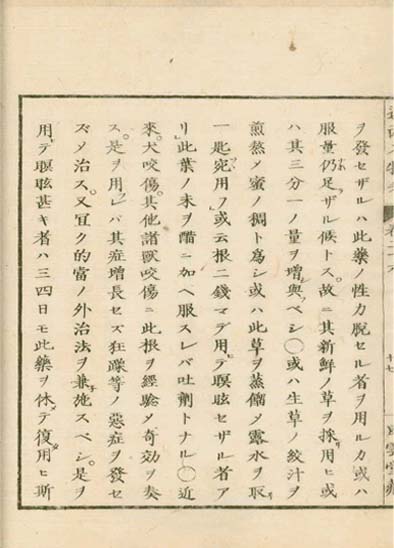 ヲ發セザルハ此藥ノ性力脫セル者ヲ用ルカ或ハ
服量仍足ラザル候トス。故ニ其新鮮ノ草ヲ採リ用ヒ或
ハ其三分一ノ量ヲ增シ與フベシ〇或ハ生草ノ絞汁ヲ
煎熬メ蜜ノ稠ト爲シ或ハ此草ヲ蒸餾メ露水ヲ取リ
一匙宛用フ或云根二錢マデ用テ瞑眩セザル者ア
リ此葉ノ末ヲ醋ニ加ヘ服スレバ吐劑トナル〇近
來犬咬傷。其他諸獸咬傷ニ此根ヲ經驗メ奇効ヲ奏
ス。是ヲ用レバ其症增長セズ狂躁等ノ惡症ヲ發セ
ズメ治ス。又宜ク的當ノ外治法ヲ兼施スベシ。是ヲ
用テ瞑眩甚キ者ハ三四日モ此藥ヲ休テ復用ヒ斯